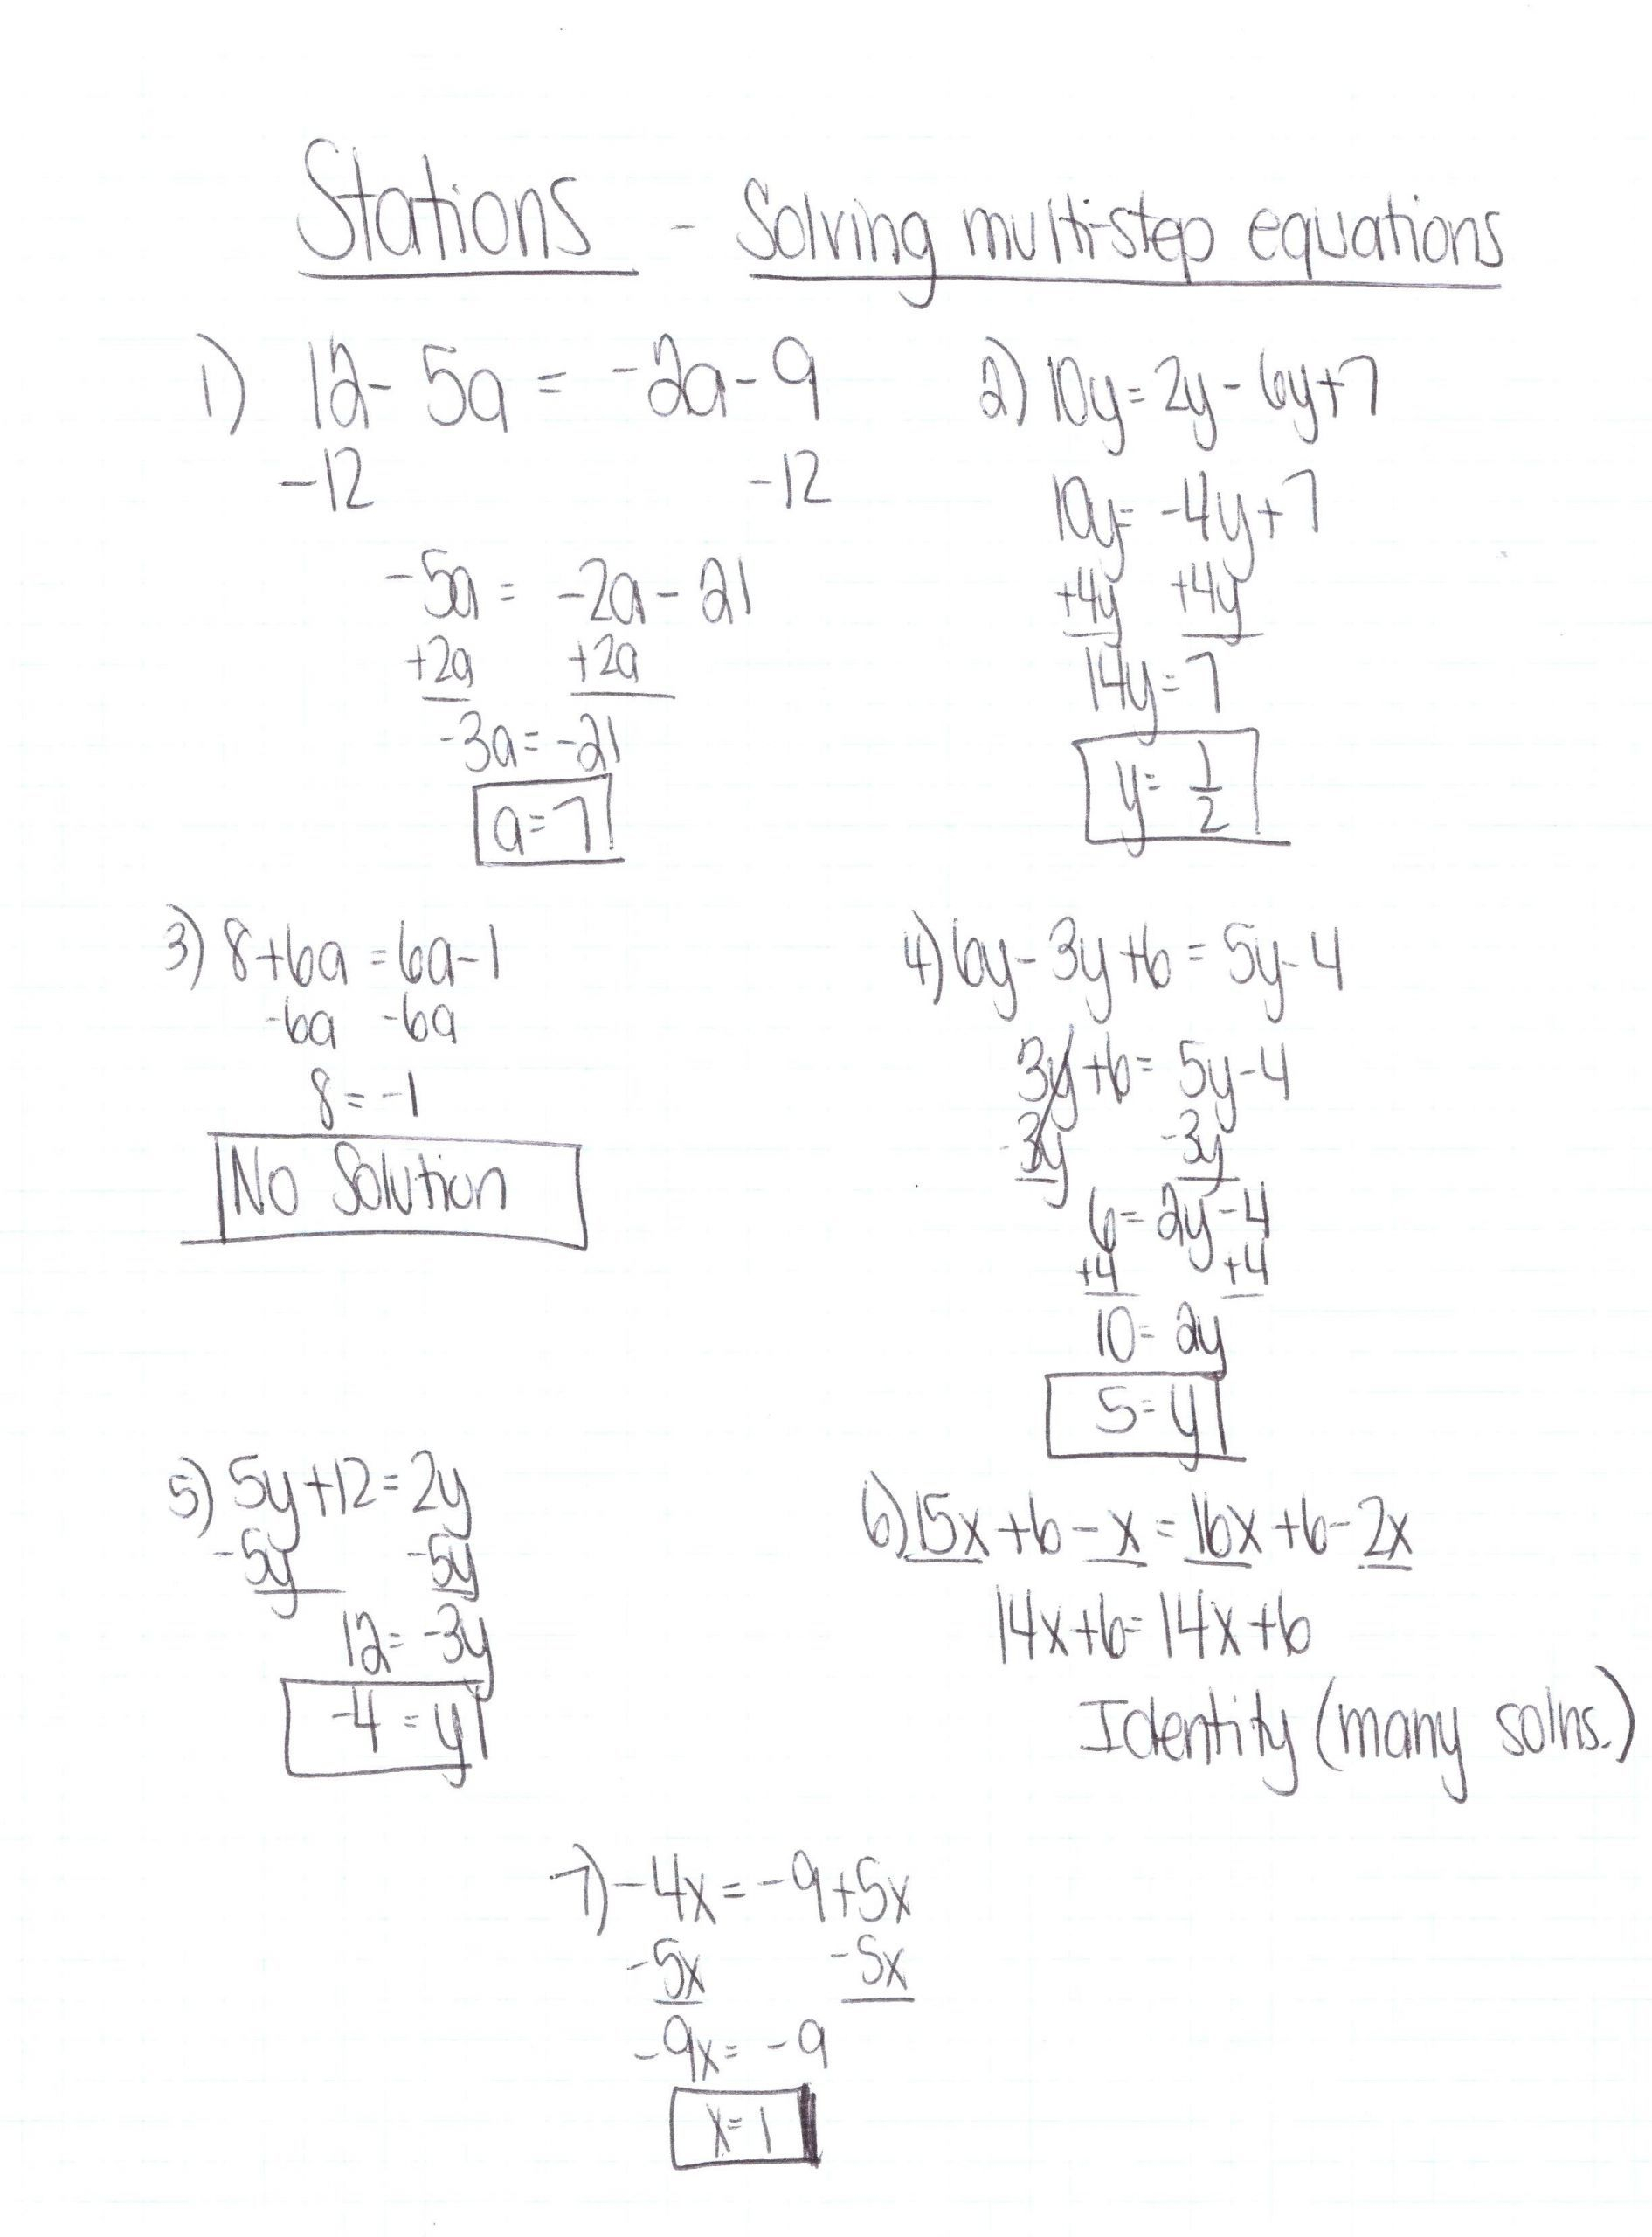 Stations - Solving multi-step equations
1) 12 - 5a = -2a - 9
-12 -12
-5a = -2a - 21
+2a +2a
-3a = -21
a = 7
2) 10y = 2y - 6y + 7
10y = -4y + 7
+4y +4y
14y = 7
y = 1/2
3) 8 + 6a = 6a - 1
-6a -6a
8 = -1
No Solution
4) 6y - 3y + 6 = 5y - 4
3y + 6 = 5y - 4
-3y -3y
6 = 2y - 4
+4 +4
10 = 2y
5 = y
5) 5y + 12 = 2y
-5y -5y
12 = -3y
-4 = y
6) 15x + 6 - x = 16x + 6 - 2x
14x + 6 = 14x + 6
Identity (many solns.)
7) -4x = -9 + 5x
-5x -5x
-9x = -9
x = 1